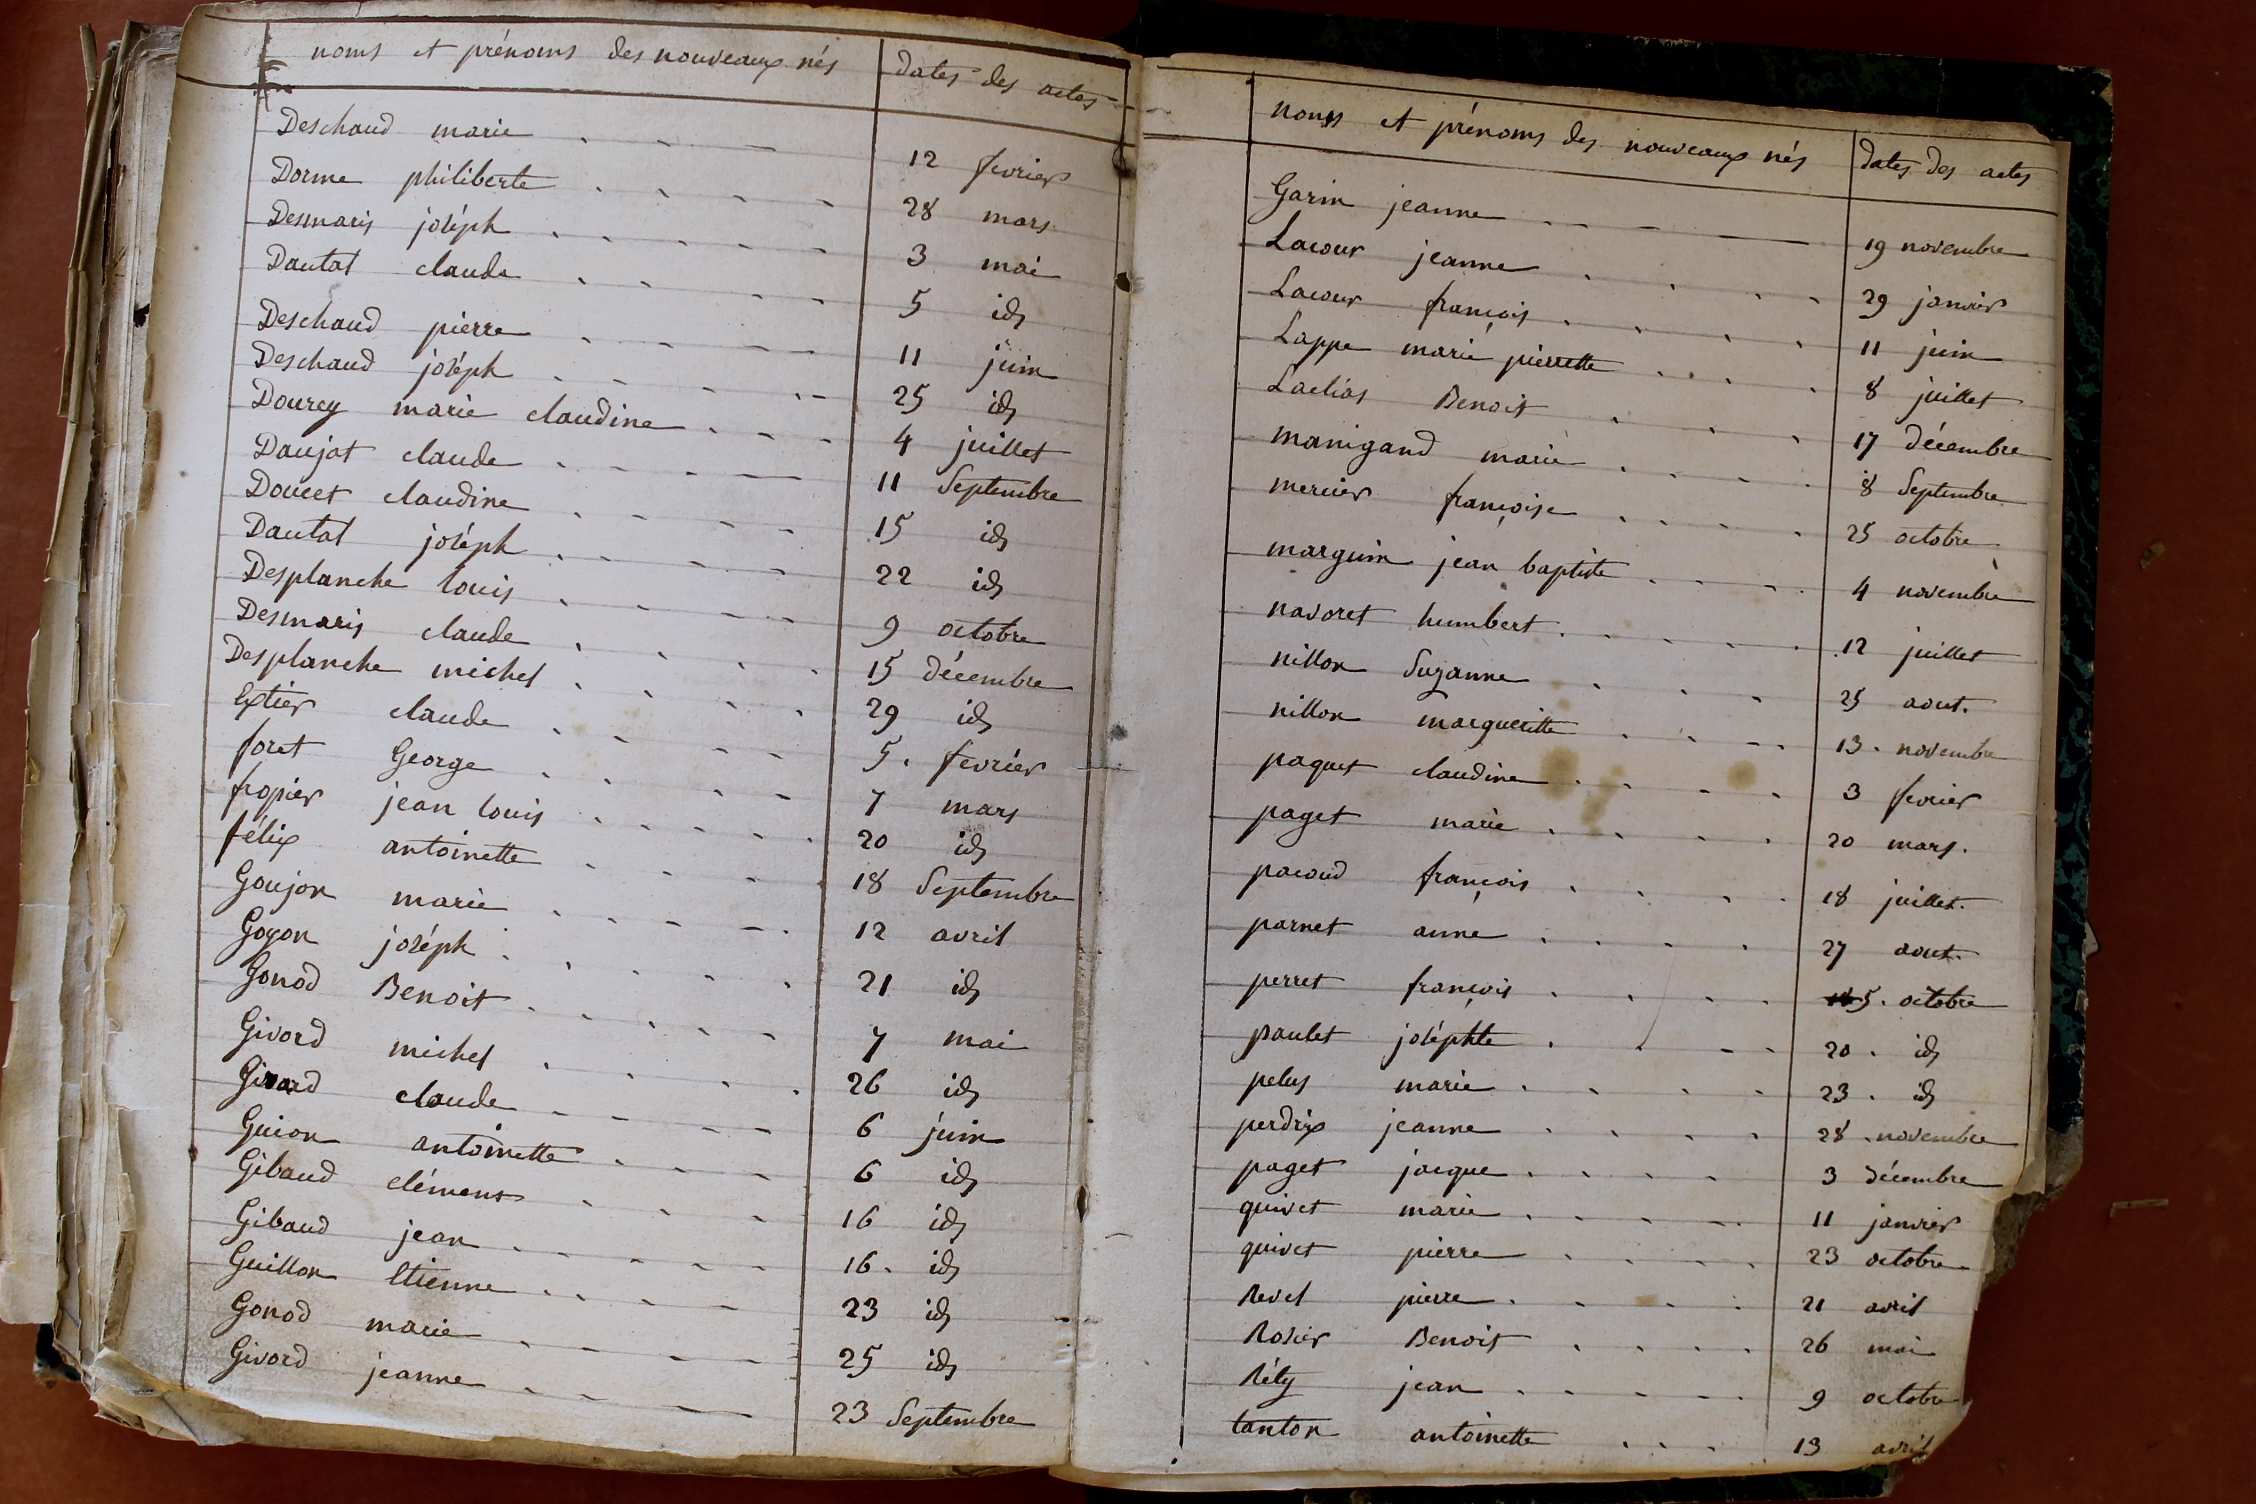 noms et prénoms des nouveaux nés dates des actes
Deschaud marie 12 fevrier
Dorme philiberte 28 mars
Desmaris joséph 3 mai
Dautat claude 5 id
Deschaud pierre 11 juin
Deschaud joséph 25 id
Dourey marie claudine 4 juillet
Daujat claude 11 Septembre
Doucet claudine 15 id
Dautat joséph 22 id
Desplanche louis 9 octobre
Desmaris claude 15 décembre
Desplanche michel 29 id
Extier claude 5. fevrier
foret George 7 mars
fropier jean louis 20 id
félix antoinette 18 Septembre
Goujon marie 12 avril
Goyon joséph 21 id
Gonod Benoit 7 mai
Givord michel 26 id
Girard claude 6 juin
Guion antoinette 6 id
Gibaud clémens 16 id
Gibaud jean 16. id
Guillon Etienne 23 id
Gonod marie 25 id
Givord jeanne 23 Septembre
noms et prénoms des nouveaux nés dates des actes
Garin jeanne 19 novembre
Lacour jeanne 29 janvier
Lacour françois 11 juin
Lappe marie pierrette 8 juillet
Benoit 17 décembre
manigand marie 8 Septembre
mercier françoise 25 octobre
marguin jean baptiste 4 novembre
navoret humbert 12 juillet
nillon Suzanne 25 aout.
nillon margueritte 13. novembre
paquet claudine 3 fevrier
paget marie 20 mars.
pacoud françois 18 juillet.
parnet anne 27 aout.
perret françois 5. octobre
paulet joséphte 20. id
pelus marie 23. id
perdrix jeanne 28. novembre
paget jacque 3 décembre
quivet marie 11 janvier
quivet pierre 23 octobre
Revel pierre 21 avril
Rosier Benoit 26 mai
Réty jean 9 octobre
tanton antoinette 13 avril